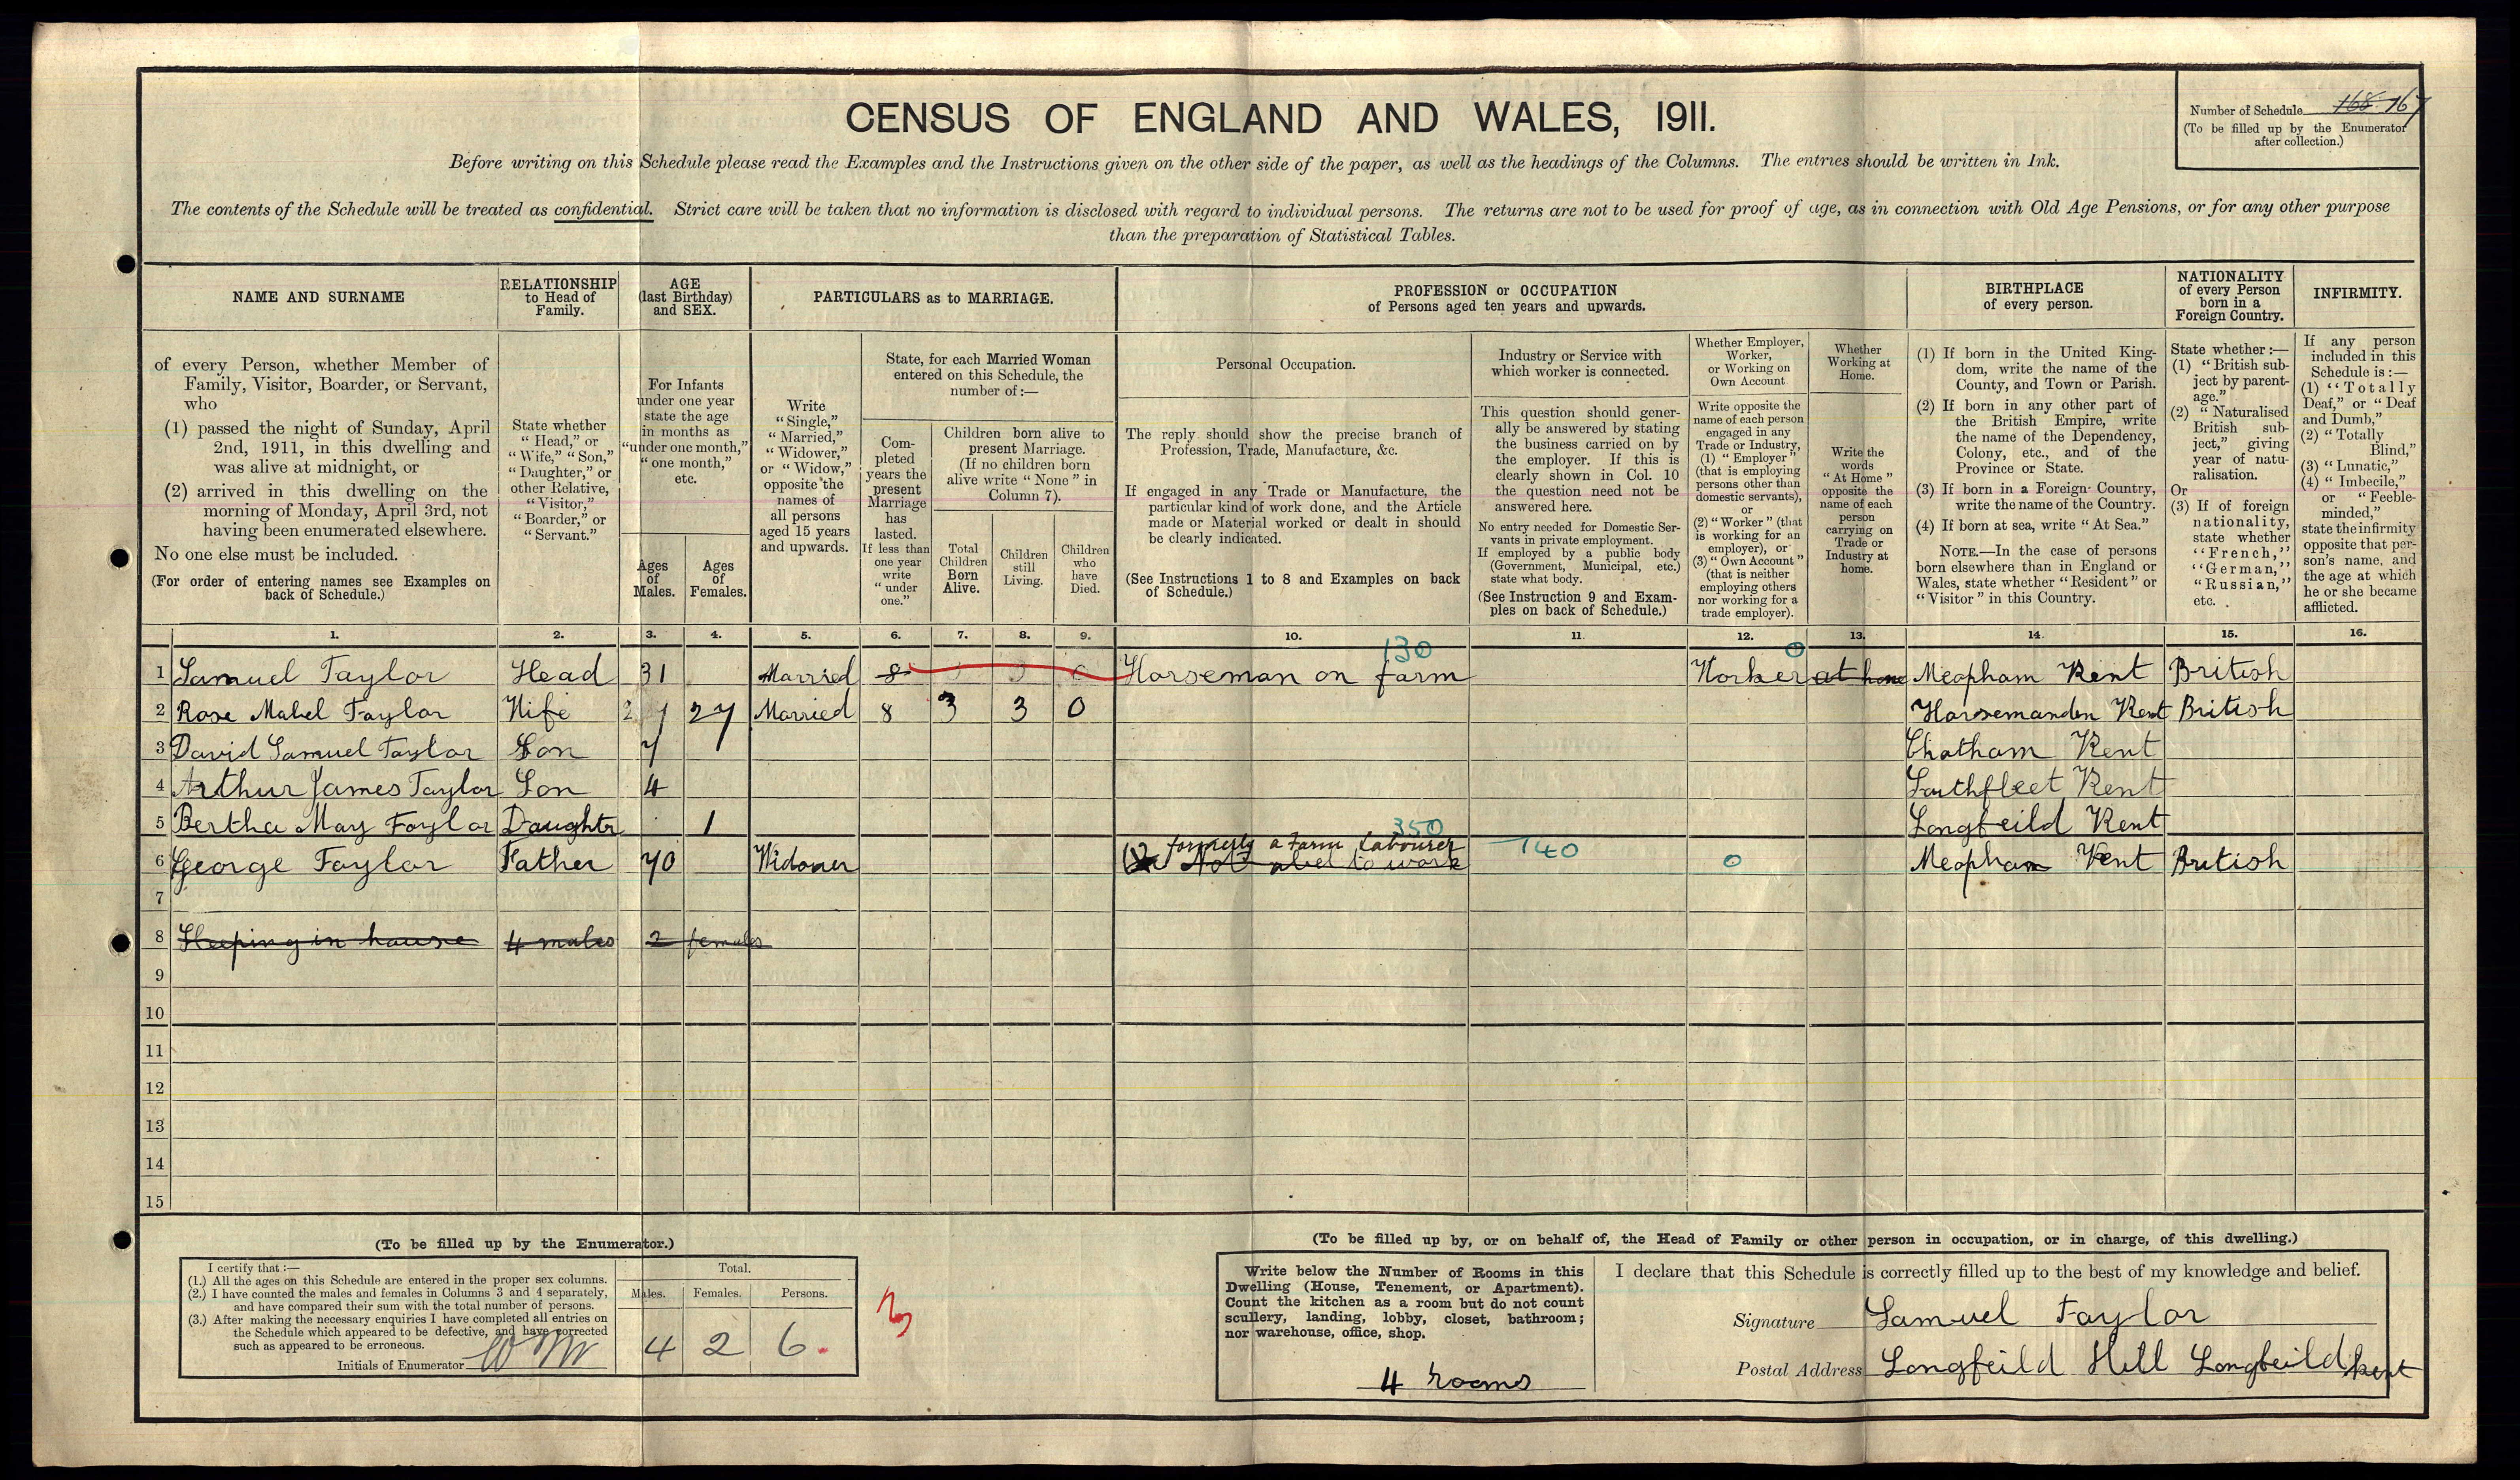 CENSUS OF ENGLAND AND WALES, 1911.
Number of Schedule 168 167
(To be filled up by the Enumerator
after collection.)
Before writing on this Schedule please read the Examples and the Instructions given on the other side of the paper, as well as the headings of the Columns. The entries should be written in Ink.
The contents of the Schedule will be treated as confidential. Strict care will be taken that no information is disclosed with regard to individual persons. The returns are not to be used for proof of age, as in connection with Old Age Pensions, or for any other purpose
than the preparation of Statistical Tables.
NAME AND SURNAME
of every Person, whether Member of
Family, Visitor, Boarder, or Servant,
who
(1) passed the night of Sunday, April
2nd, 1911, in this dwelling and
was alive at midnight, or
(2) arrived in this dwelling on the
morning of Monday, April 3rd, not
having been enumerated elsewhere.
No one else must be included.
(For order of entering names see Examples on
back of Schedule.)
RELATIONSHIP
to Head of
Family.
State whether
"Head," or
"Wife," "Son,"
"Daughter," or
other Relative,
"Visitor,"
"Boarder," or
"Servant."
AGE
(last Birthday)
and SEX.
For Infants
under one year
state the age
in months as
"under one month,"
"one month,"
etc.
Ages
of
Males.
Ages
of
Females.
PARTICULARS as to MARRIAGE.
Write
"Single,"
"Married,"
"Widower,"
or "Widow,"
opposite the
names of
all persons
aged 15 years
and upwards.
State, for each Married Woman
entered on this Schedule, the
number of:—
Com-
pleted
years the
present
Marriage
has
lasted.
If less than
one year
write
"under
one."
Children born alive to
present Marriage.
(If no children born
alive write "None" in
Column 7).
Total
Children
Born
Alive.
Children
still
Living.
Children
who
have
Died.
PROFESSION or OCCUPATION
of Persons aged ten years and upwards.
Personal Occupation.
The reply should show the precise branch of
Profession, Trade, Manufacture, &c.
If engaged in any Trade or Manufacture, the
particular kind of work done, and the Article
made or Material worked or dealt in should
be clearly indicated.
(See Instructions 1 to 8 and Examples on back
of Schedule.)
Industry or Service with
which worker is connected.
This question should gener-
ally be answered by stating
the business carried on by
the employer. If this is
clearly shown in Col. 10
the question need not be
answered here.
No entry needed for Domestic Ser-
vants in private employment.
If employed by a public body
(Government, Municipal, etc.)
state what body.
(See Instruction 9 and Exam-
ples on back of Schedule.)
Whether Employer,
Worker,
or Working on
Own Account
Write opposite the
name of each person
engaged in any
Trade or Industry,
(1) "Employer"
(that is employing
persons other than
domestic servants),
or
(2) "Worker" (that
is working for an
employer), or
(3) "Own Account"
(that is neither
employing others
nor working for a
trade employer).
Whether
Working at
Home.
Write the
words
"At Home"
opposite the
name of each
person
carrying on
Trade or
Industry at
home.
BIRTHPLACE
of every person.
(1) If born in the United King-
dom, write the name of the
County, and Town or Parish.
(2) If born in any other part of
the British Empire, write
the name of the Dependency,
Colony, etc., and of the
Province or State.
(3) If born in a Foreign Country,
write the name of the Country.
(4) If born at sea, write "At Sea."
NOTE.—In the case of persons
born elsewhere than in England or
Wales, state whether "Resident" or
"Visitor" in this Country.
NATIONALITY
of every Person
born in a
Foreign Country.
State whether:—
(1) "British sub-
ject by parent-
age."
(2) "Naturalised
British sub-
ject," giving
year of natu-
ralisation.
Or
(3) If of foreign
nationality,
state whether
"French,"
"German,"
"Russian,"
etc.
INFIRMITY.
If any person
included in this
Schedule is:—
(1) "Totally
Deaf," or "Deaf
and Dumb,"
(2) "Totally
Blind,"
(3) "Lunatic,"
(4) "Imbecile,"
or "Feeble-
minded,"
state the infirmity
opposite that per-
son's name, and
the age at which
he or she became
afflicted.
1. 2. 3. 4. 5. 6. 7. 8. 9. 10. 11. 12. 13. 14. 15. 16.
130 0
1 Samuel Taylor Head 31 Married 8 Horseman on farm Worker at home Meopham Kent British
2 Rose Mabel Taylor Wife 27 27 Married 8 3 3 0 Horsemanden Kent British
3 David Samuel Taylor Son 7 Chatham Kent
4 Arthur James Taylor Son 4 Southfleet Kent
5 Bertha May Taylor Daughtr 1 Longfeild Kent
350
formerly a Farm Labourer
6 George Taylor Father 70 Widower Not abel to work 740 0 Meopham Kent British
7
8 Sleeping in house 4 males 2 females
9
10
11
12
13
14
15
(To be filled up by the Enumerator.)
I certify that:—
(1.) All the ages on this Schedule are entered in the proper sex columns.
(2.) I have counted the males and females in Columns 3 and 4 separately,
and have compared their sum with the total number of persons.
(3.) After making the necessary enquiries I have completed all entries on
the Schedule which appeared to be defective, and have corrected
such as appeared to be erroneous.
Initials of Enumerator
Total.
Males. Females. Persons.
4 2 6
3
(To be filled up by, or on behalf of, the Head of Family or other person in occupation, or in charge, of this dwelling.)
Write below the Number of Rooms in this
Dwelling (House, Tenement, or Apartment).
Count the kitchen as a room but do not count
scullery, landing, lobby, closet, bathroom;
nor warehouse, office, shop.
4 rooms
I declare that this Schedule is correctly filled up to the best of my knowledge and belief.
Signature Samuel Taylor
Postal Address Longfeild Hill Longfeild Kent